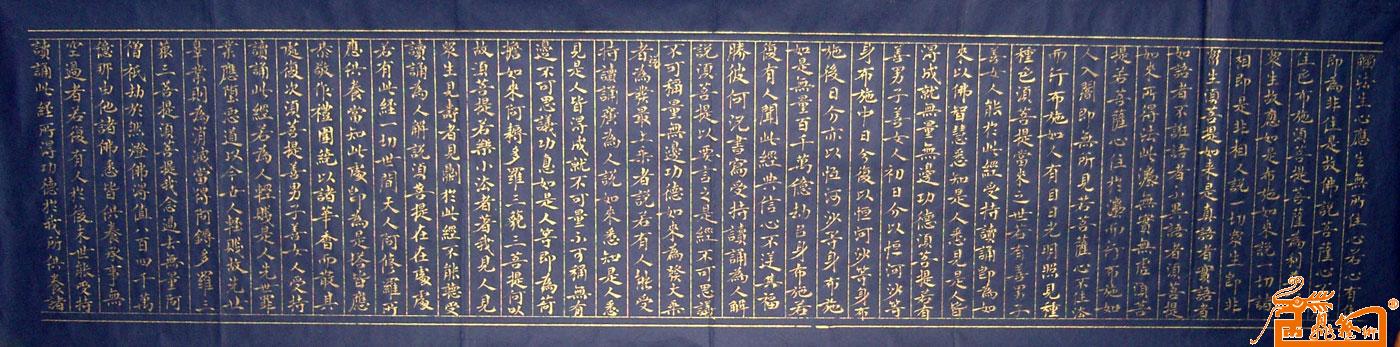 觸法生心應生無所住心若心有
即為非住是故佛說菩薩心
住色布施須菩提菩薩為利
眾生故應如是布施如來說一切諸
相即是非相又說一切眾生即非
眾生須菩提如來是真語者實語者
如語者不誑語者不異語者須菩提
如來所得法此法無實無虛須菩
提若菩薩心住於法而行布施如
人入闇即無所見若菩薩心不住法
而行布施如人有目日光明照見種
種色須菩提當來之世若有善男子
善女人能於此經受持讀誦即為如
來以佛智慧悉知是人悉見是人皆
得成就無量無邊功德須菩提若有
善男子善女人初日分以恒河沙等
身布施中日分復以恒河沙等身布
施後日分亦以恒河沙等身布施
如是無量百千萬億劫以身布施若
復有人聞此經典信心不逆其福
勝彼何況書寫受持讀誦為人解
說須菩提以要言之是經有不可思議
不可稱量無邊功德如來為發大乘
者說為發最上乘者說若有人能受
持讀誦廣為人說如來悉知是人悉
見是人皆得成就不可量不可稱無有
邊不可思議功德如是人等即為荷
擔如來阿耨多羅三藐三菩提何以
故須菩提若樂小法者著我見人見
眾生見壽者見則於此經不能聽受
讀誦為人解說須菩提在在處處
若有此經一切世間天人阿修羅所
應供養當知此處即為是塔皆應
恭敬作禮圍繞以諸華香而散其
處復次須菩提善男子善女人受持
讀誦此經若為人輕賤是人先世罪
業應墮惡道以今世人輕賤故先世
罪業則為消滅當得阿耨多羅三
藐三菩提須菩提我念過去無量阿
僧祇劫於然燈佛前得值八百四千萬
億那由他諸佛悉皆供養承事無
空過者若復有人於後末世能受持
讀誦此經所得功德於我所供養諸